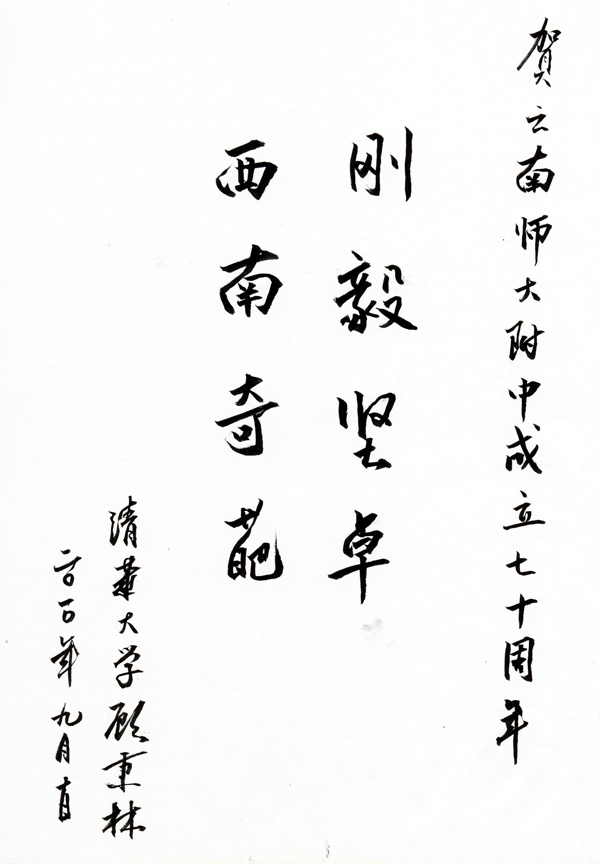 贺云南师大附中成立七十周年
刚毅坚卓
西南奇葩
清華大学顾秉林
二〇一〇年九月